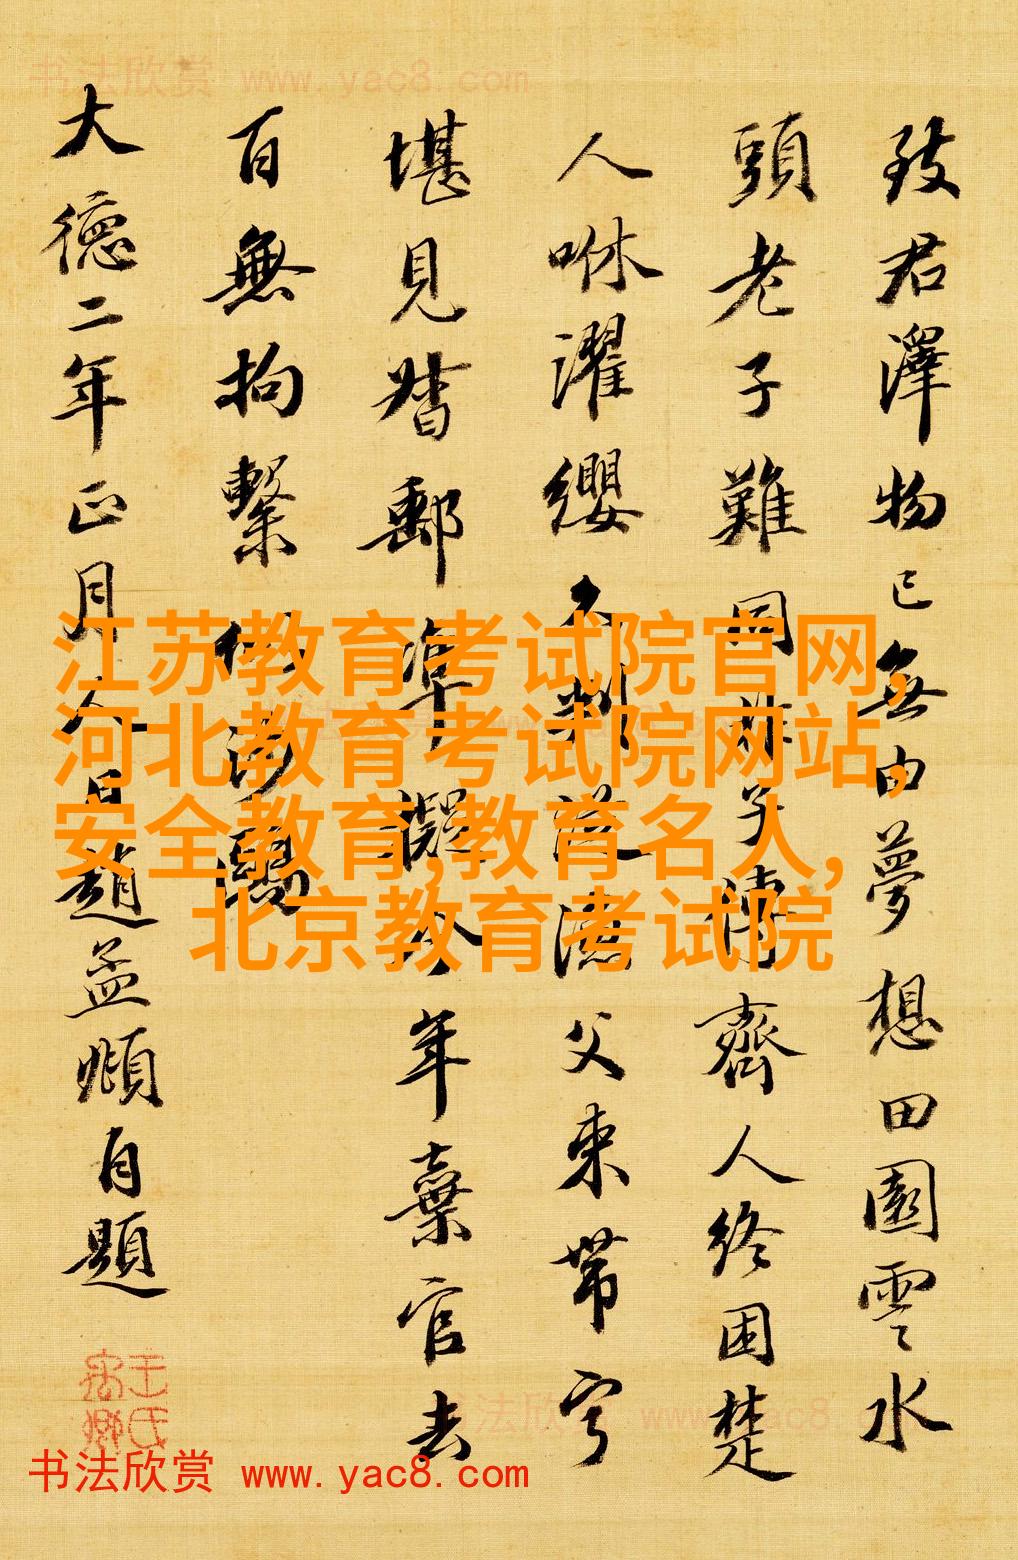 致君澤物已無由夢想田園雲水
頭老子難同非子傳齊人終困楚
人咻濯纓久判從漁父束帶寧
堪見督郵準擬今年棄官去
百無拘繫似沙鷗
大德二年正月人日趙孟頫自題
江苏教育考试院官网,
河北教育考试院网站,
安全教育,教育名人,
北京教育考试院
书法欣赏 www.yac8.com
书法欣赏 www.yac8.com